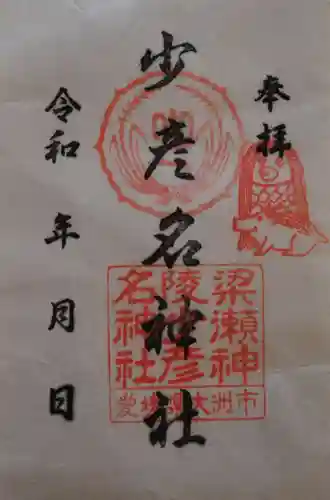 奉拝
少彦名神社
令和 年 月 日
梁瀬神
陵 彦
名神社
大洲市